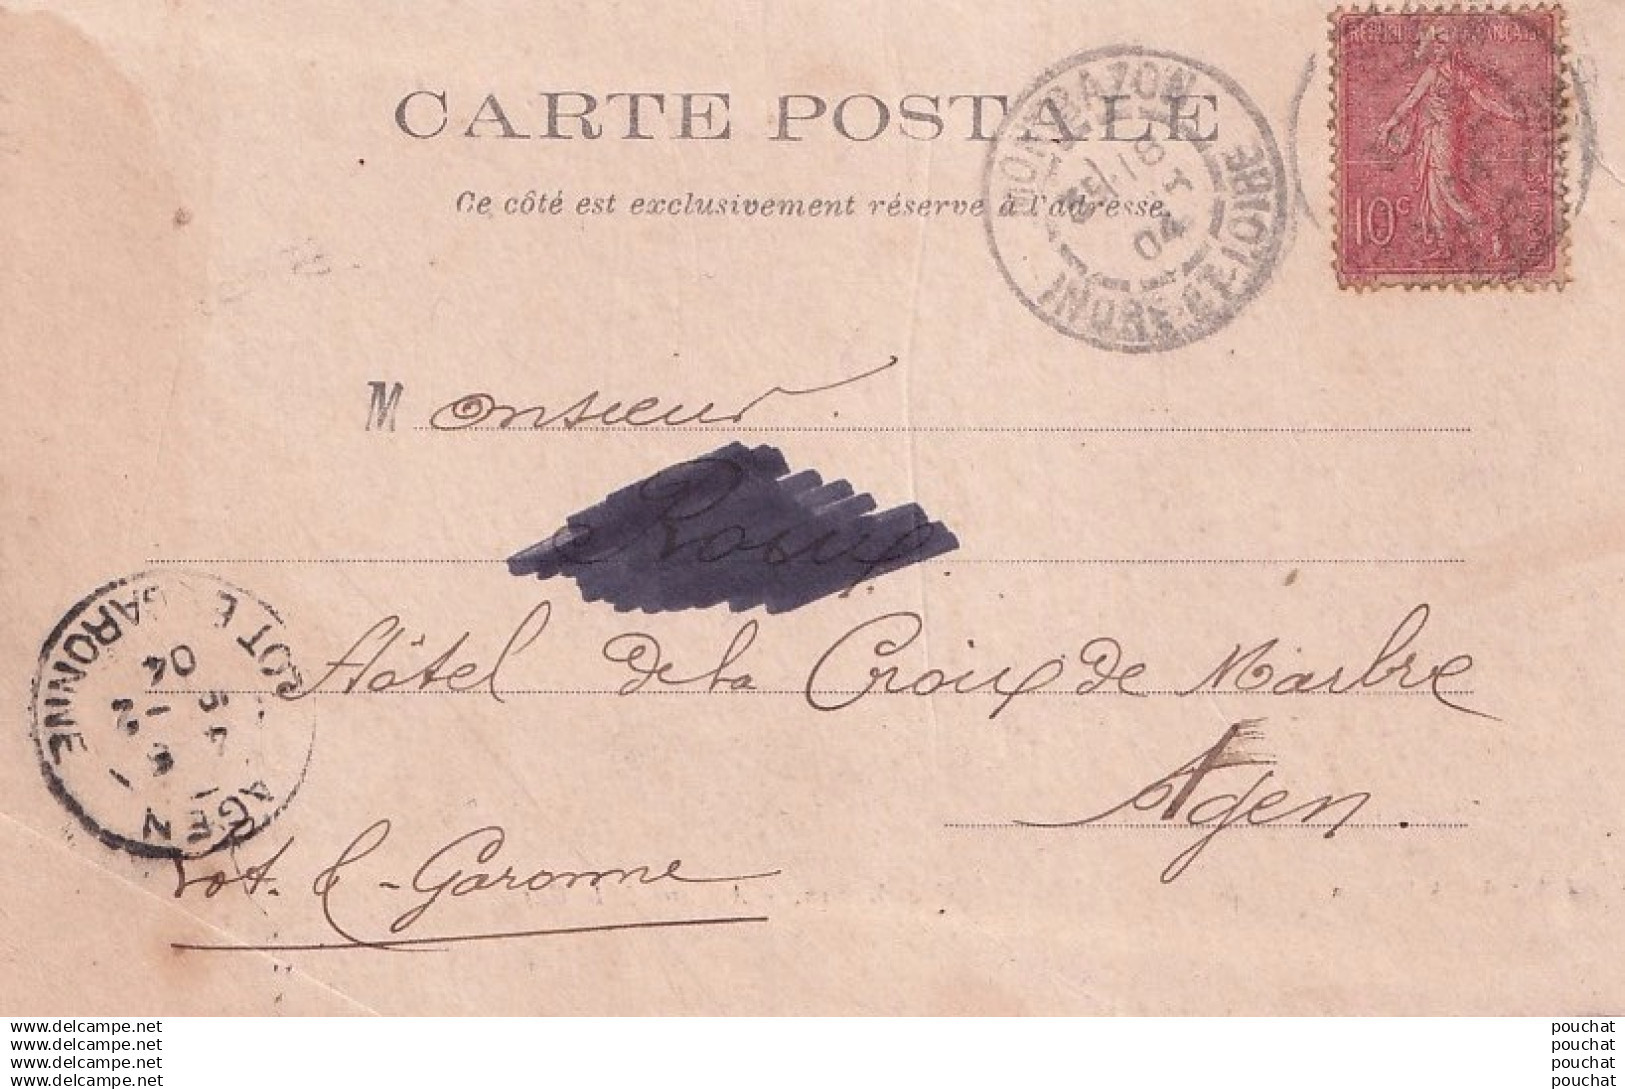 REPUBLIQUE FRANÇAISE
10c
MONTBAZON
INDRE-ET-LOIRE
04
CARTE POSTALE
Ce côté est exclusivement réservé à l'adresse.
Monsieur
Roux
Hôtel de la Croix de Marbre
Agen.
Lot-et-Garonne
AGEN
LOT ET GARONNE
04
www.delcampe.net
www.delcampe.net
www.delcampe.net
www.delcampe.net
pouchat
pouchat
pouchat
pouchat